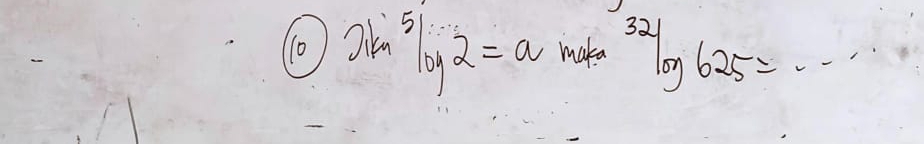 10 Jika ⁵log 2 = a maka ³²log 625 = ....